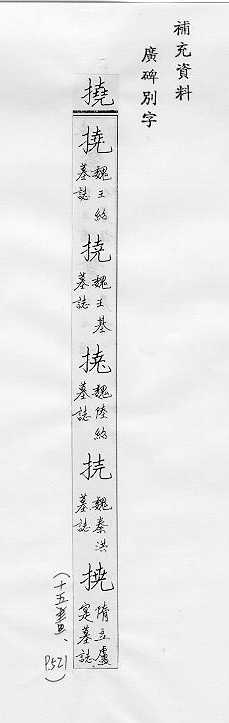 補充資料
廣碑別字
撓
魏王紹
墓誌
魏王基
墓誌
魏陸紹
墓誌
魏秦洪
墓誌
隋立盧
寔墓誌
(十五畫、P.521)